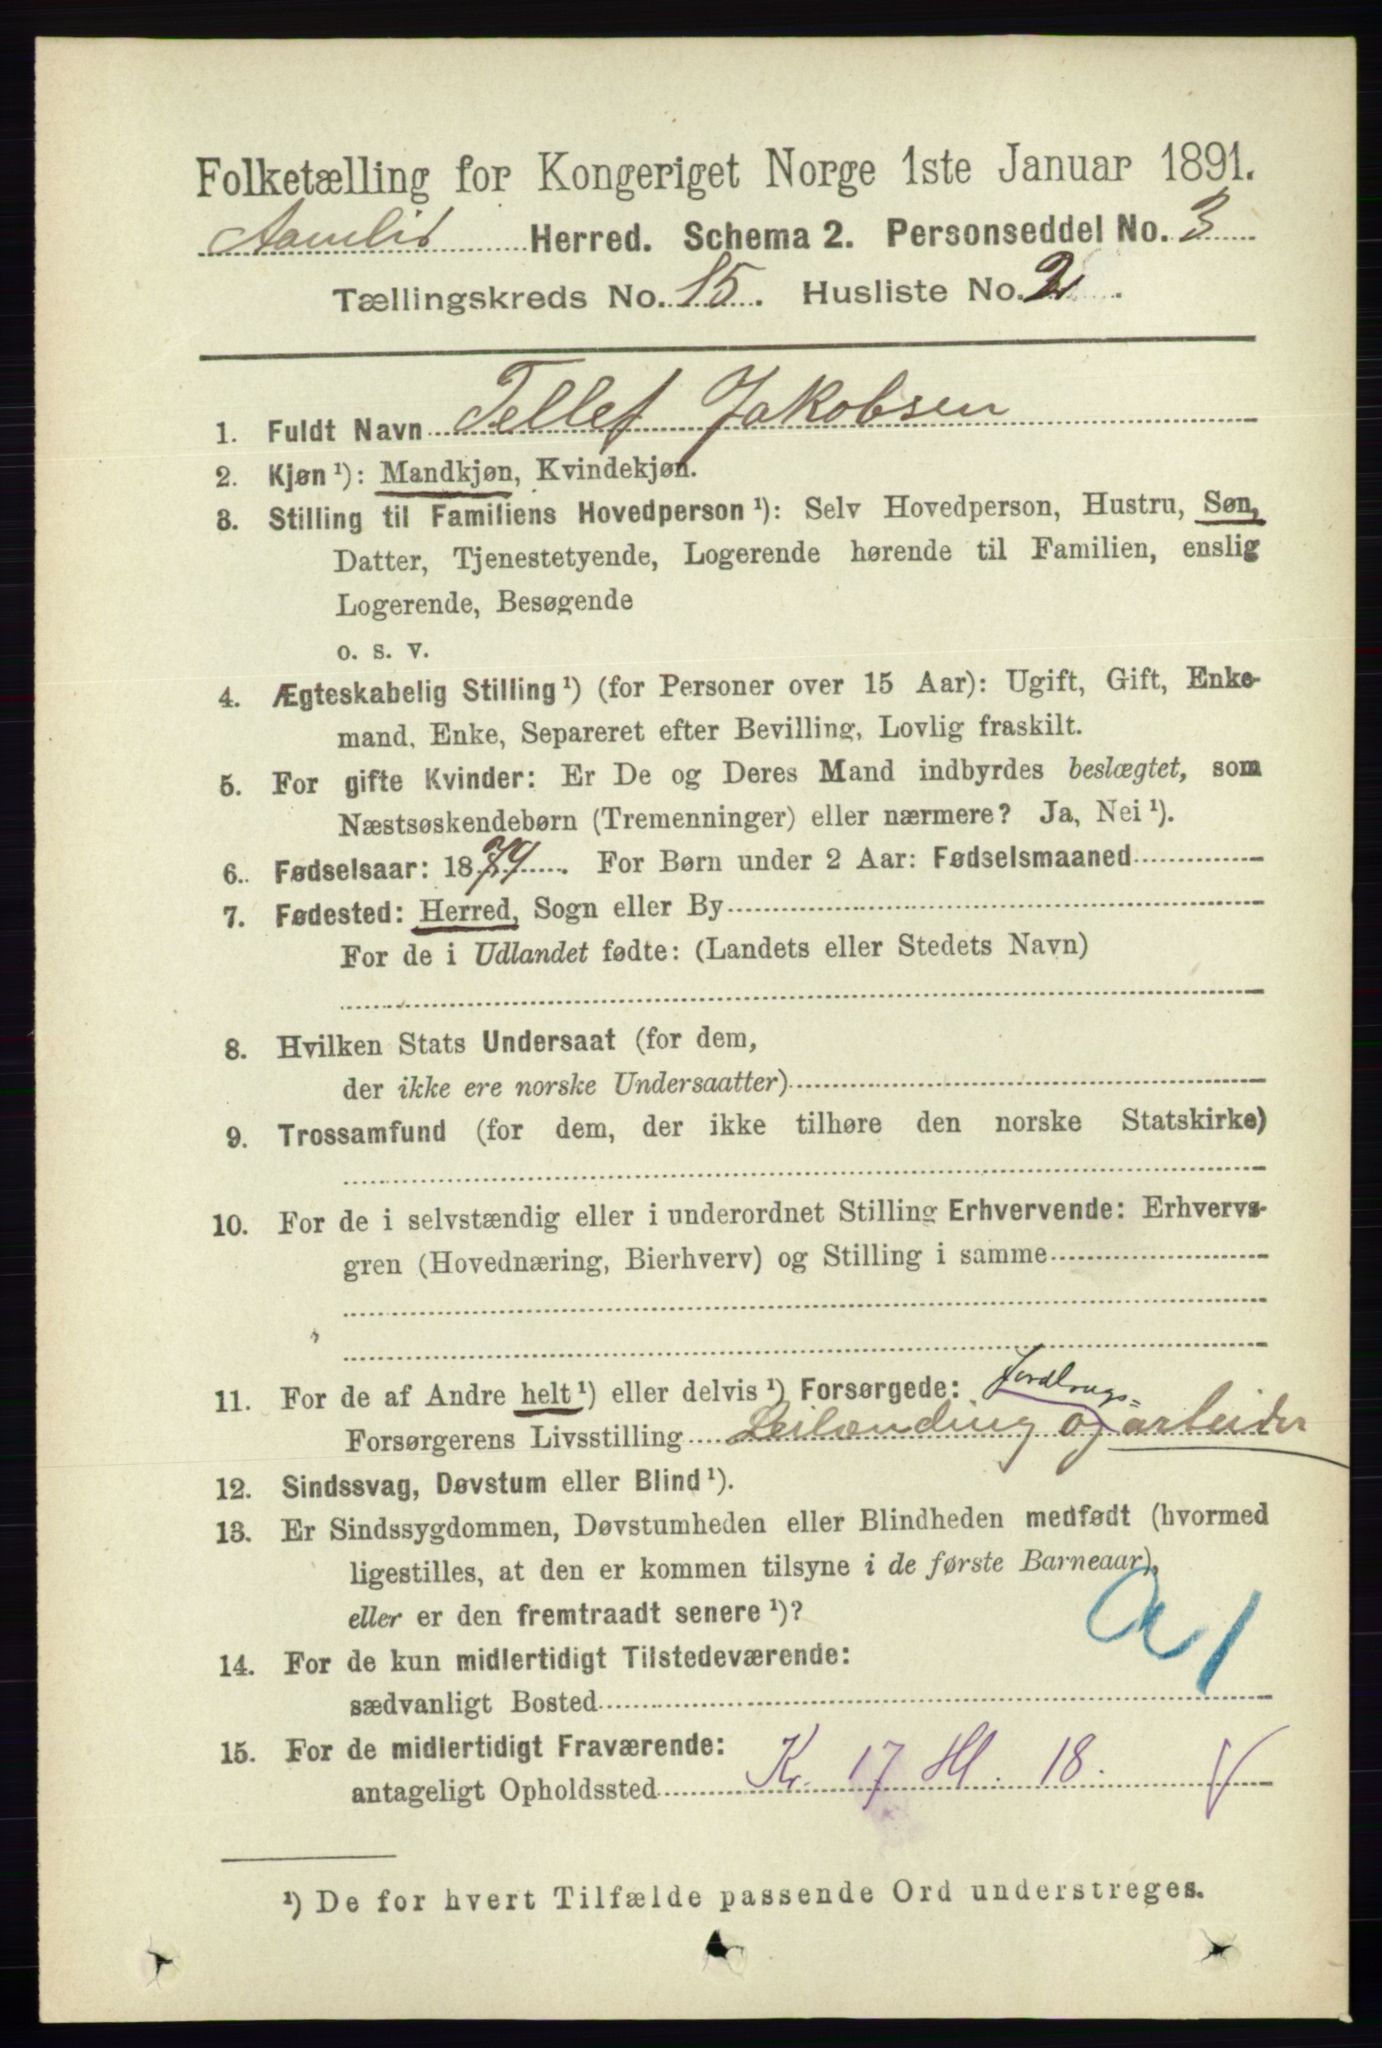 Folketælling for Kongeriget Norge 1ste Januar 1891.
Aamlid Herred. Schema 2. Personseddel No. 3
Tællingskreds No. 15. Husliste No. 2.
1. Fuldt Navn Tellef Jakobsen
2. Kjøn ¹): Mandkjøn, Kvindekjøn.
3. Stilling til Familiens Hovedperson ¹): Selv Hovedperson, Hustru, Søn,
Datter, Tjenestetyende, Logerende hørende til Familien, enslig
Logerende, Besøgende
o. s. v.
4. Ægteskabelig Stilling ¹) (for Personer over 15 Aar): Ugift, Gift, Enke-
mand, Enke, Separeret efter Bevilling, Lovlig fraskilt.
5. For gifte Kvinder: Er De og Deres Mand indbyrdes beslægtet, som
Næstsøskendebørn (Tremenninger) eller nærmere? Ja, Nei ¹).
6. Fødselsaar: 1879. For Børn under 2 Aar: Fødselsmaaned
7. Fødested: Herred, Sogn eller By
For de i Udlandet fødte: (Landets eller Stedets Navn)
8. Hvilken Stats Undersaat (for dem,
der ikke ere norske Undersaatter)
9. Trossamfund (for dem, der ikke tilhøre den norske Statskirke)
10. For de i selvstændig eller i underordnet Stilling Erhvervende: Erhvervs-
gren (Hovednæring, Bierhverv) og Stilling i samme
11. For de af Andre helt ¹) eller delvis ¹) Forsørgede: Jordbrugs=
Forsørgerens Livsstilling Leilænding og arbeider
12. Sindssvag, Døvstum eller Blind ¹).
13. Er Sindssygdommen, Døvstumheden eller Blindheden medfødt (hvormed
ligestilles, at den er kommen tilsyne i de første Barneaar),
eller er den fremtraadt senere ¹)?
a 1
14. For de kun midlertidigt Tilstedeværende:
sædvanligt Bosted
15. For de midlertidigt Fraværende:
antageligt Opholdssted Kr. 17 Hl. 18.
¹) De for hvert Tilfælde passende Ord understreges.